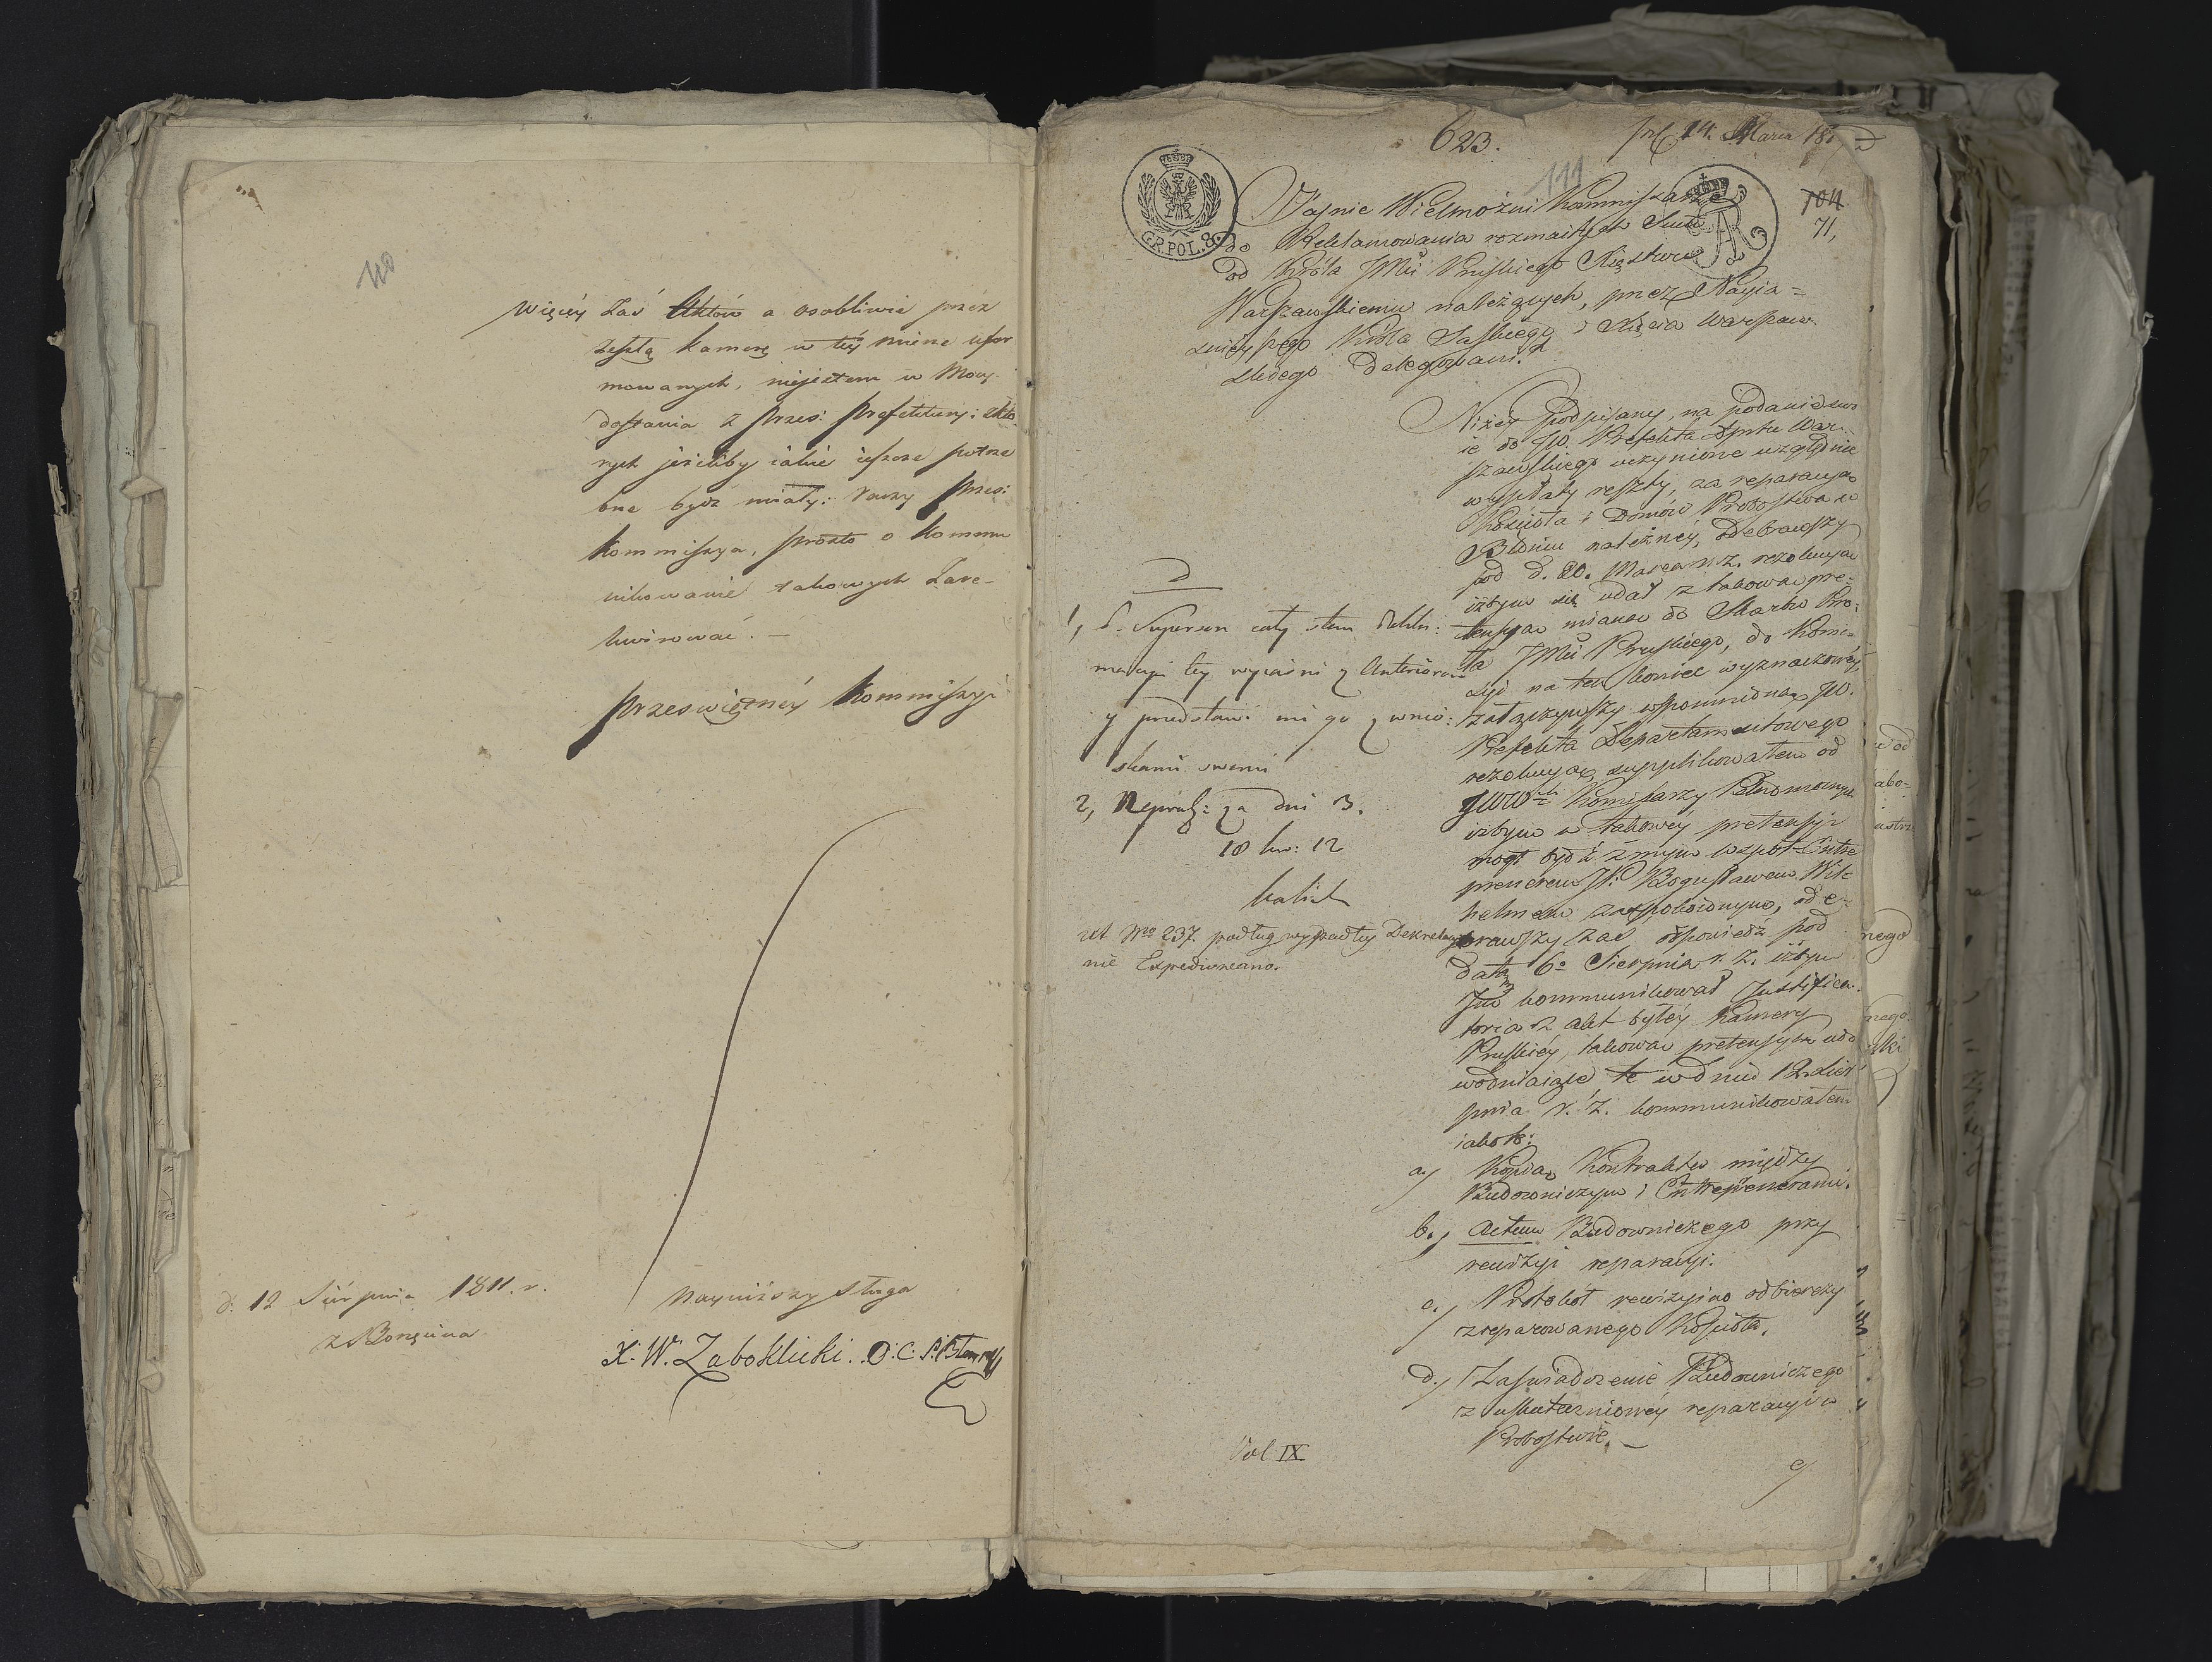 110
więcéy zaś Aktów a osobliwie przez
zeszłą kamerę w téy mierze ufor
mowanych, niejestem w Mocy
dostania z Przes: Prefektury: z któ
rych jeżeliby iakie ieszcze potrze
bne bydź miały: raczy Przes:
Kommissya, prosto o kommu
nikowanie takowych Zare-
kwirować. —
Prześwietnéy Kommissyi
d. 12 Sierpnia 1811. r.
z Boręcina
Nayniższy Sługa
X. W. Zaboklicki. O: C: P:
623.
14. Marca
111
104
71,
GR.POL.8.
Jaśnie Wielmożni Kommissarze
do Reklamowania rozmaitych Summ
od Króla JMci Pruskiego Księstwu
Warszawskiemu należących, przez Nayia=
śnieyszego Króla Saskiego i Xięcia Warszaw
skiego Delegowani.
Niżey podpisany, na podanie swo
ie do JW. Prefekta Dpttu War-
szawskiego uczynione względnie
wypłaty reszty, za reparacyą
Kościoła i Domów Probostwa w
Błoniu należnéy, odebrawszy
pod d. 20. Marca r. z. rezolucyą
iżbym się udał z takową pre-
tensyą mianą do Skarbu Kró-
la JMci Pruskiego, do Komis-
syi na ten koniec wyznaczonéy,
załączywszy wspomnioną JW.
Prefekta Departamentowego
rezolucyą, supplikowałem od
JWW Komisarzy Pełnomocnych
iżbym w takowéy pretensyi
mógł bydź z mym wspól-Entre
prenerem JP. Bogusławem Wil-
helmem zaspokoionym, ode-
brawszy zaś odpowiedź pod
datą 6° Sierpnia r. z. iżbym
Im kommunikował Justifica
toria z akt byłéy Kamery
Pruskiéy, takową pretensyą udo
wodniaiące te w dniu 12. Sier
pnia r. z. kommunikowałem
iako to:
a.) Kopią Kontraktu między
Budowniczym i Entreprenerami.
b.) Actum Budowniczego przy
rewizyi reparacyi.
c.) Protokół rewizyino odbierczy
zreparowanego Kościoła.
d.) Zaświadczenie Budowniczego
z uskutecznionéy reparacyi w
Probostwie. —
e)
1, S. Supersen cały stan Rekla:
macyi téy wyiaśni z Anteriorum
y przedstawi mi go z wnio:
skami swemi
2, Reprod: za dni 3.
18 kw: 12
Kalish
ut Nro 237. podług wypadłéy Dekretacyi
nie Expediowano.
Vol IX
nego
nego